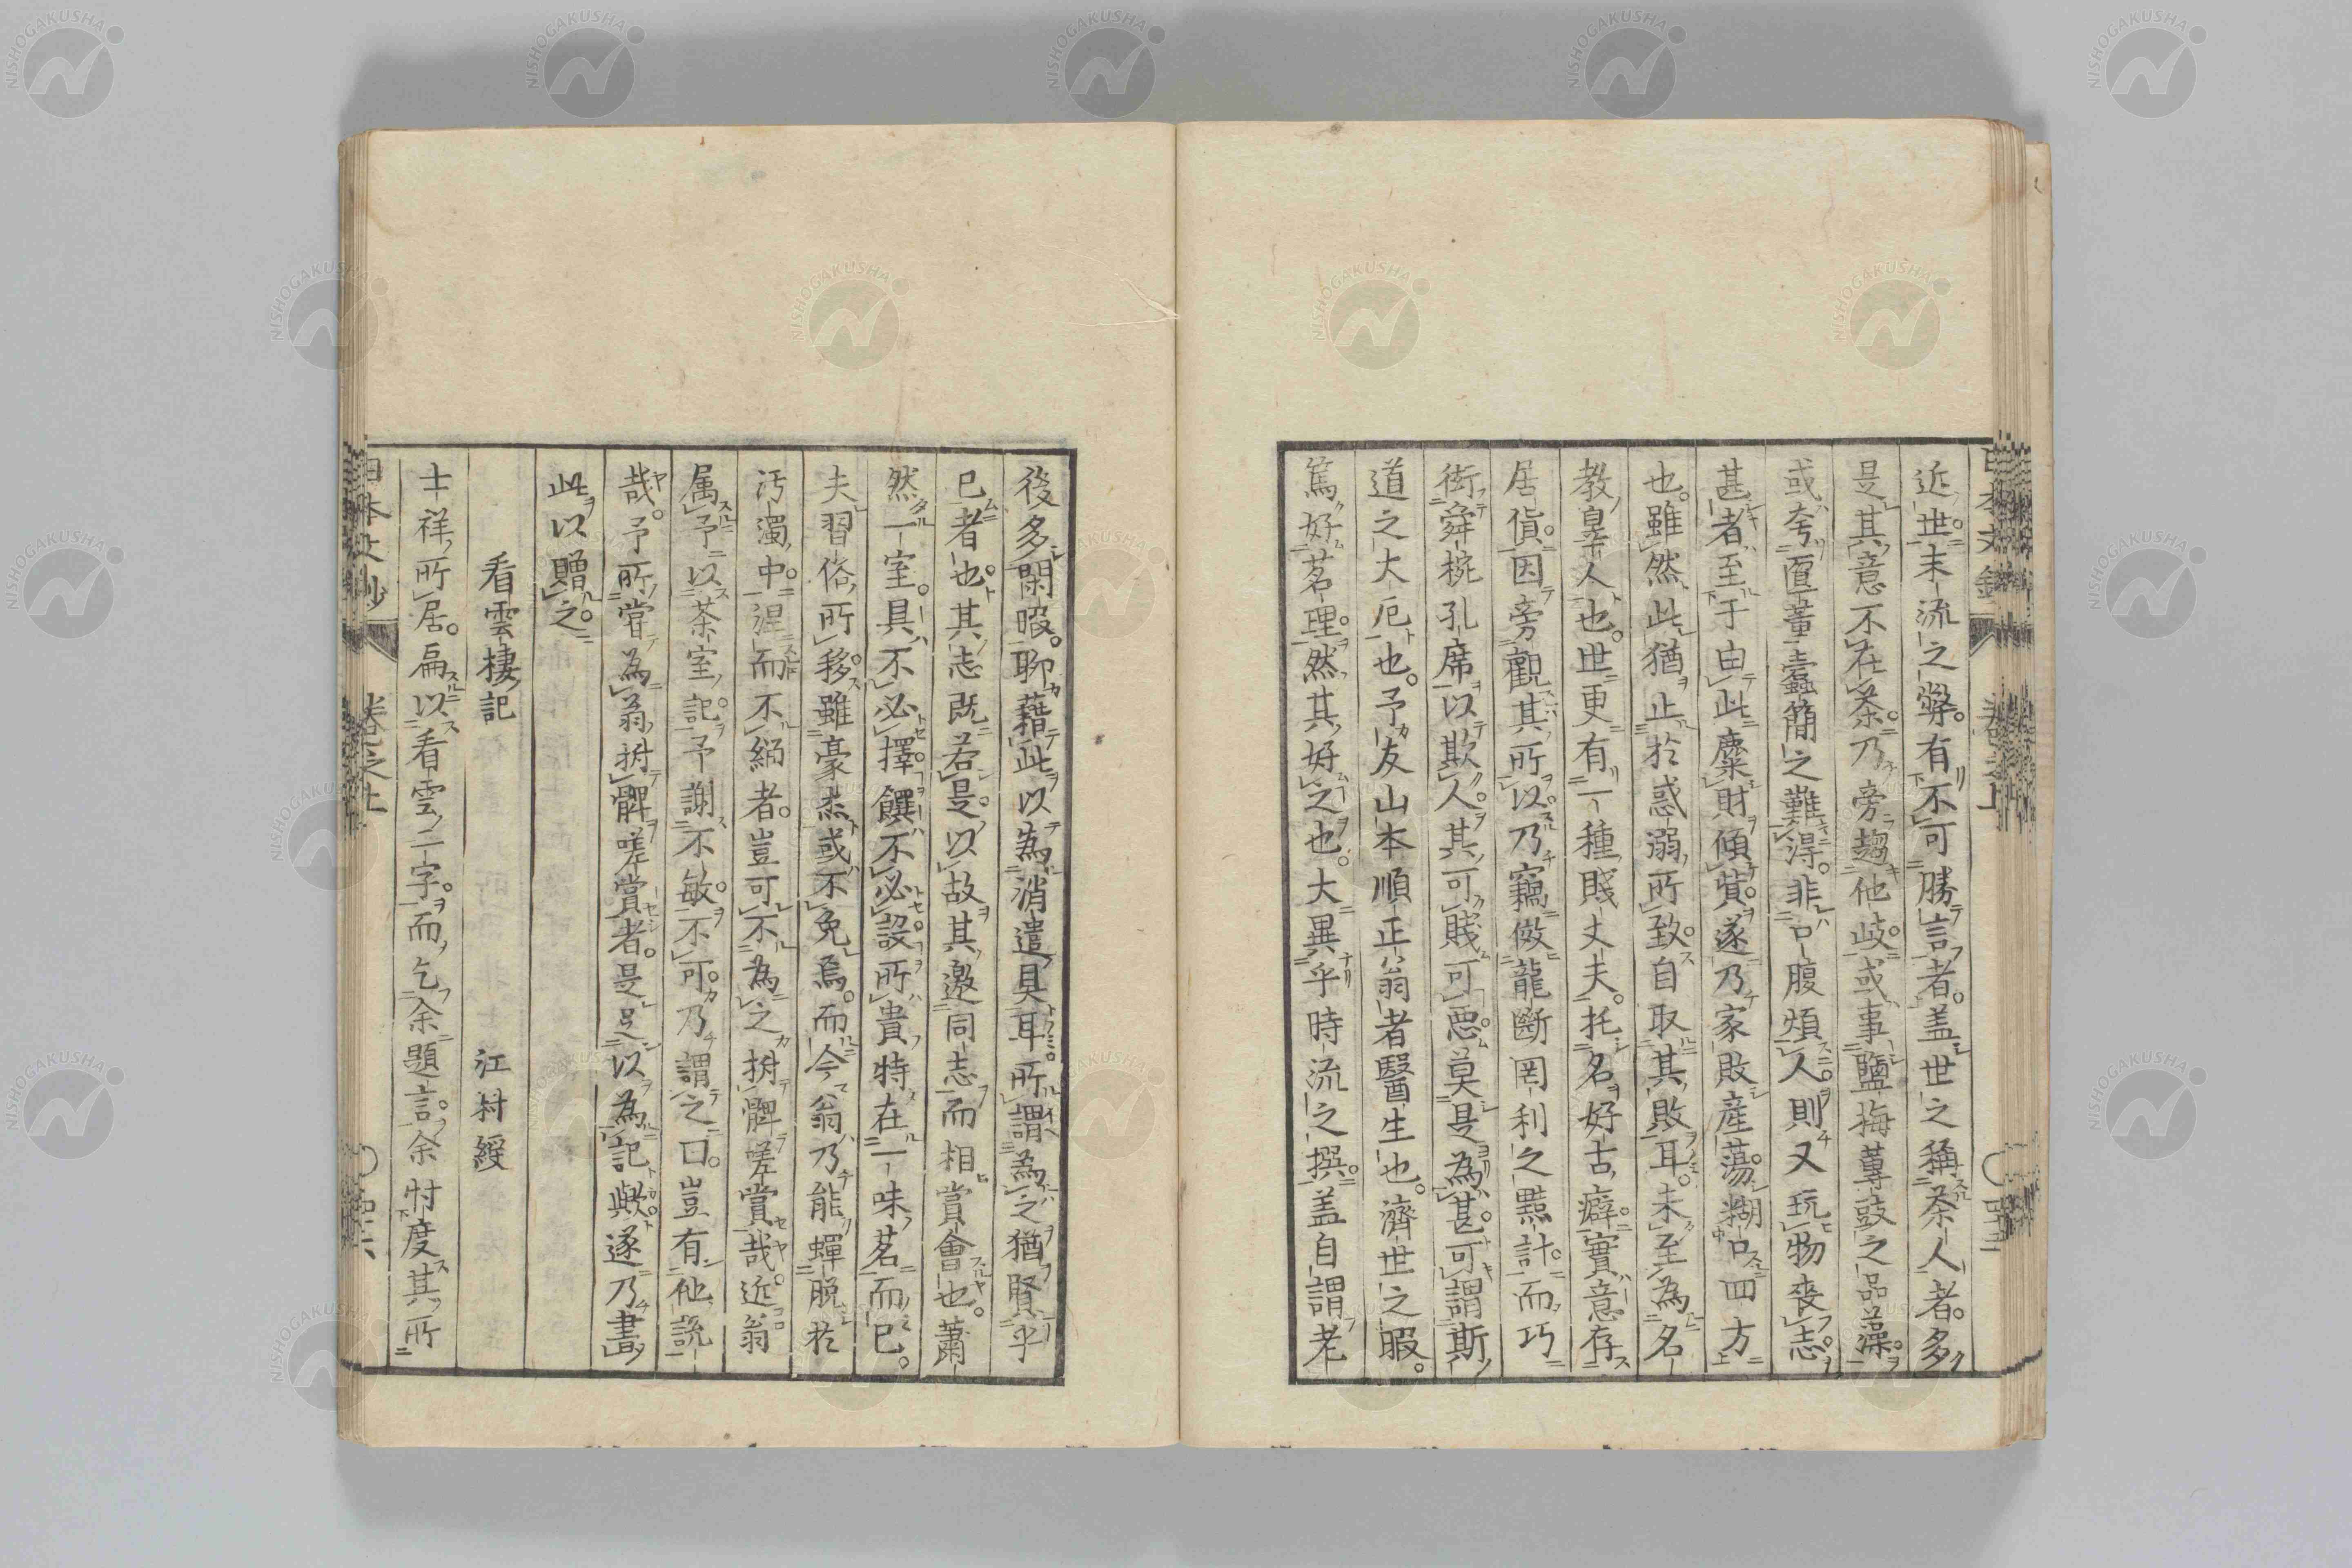 近世末流之弊。有不可勝言者。盖世之稱茶人者。多
是其意不在茶。乃旁趨他岐。或事鹽梅蓴豉之品藻。
或夸匳董蠧簡之難得。非口腹煩人。則又玩物喪志。
甚者至于由此糜財傾貲。遂乃家敗産蕩糊口四方
也。雖然此猶止於惑溺所致。自取其敗耳。未至為名
教辠人也。世更有一種賤丈夫。托名好古癖。實意存
居貨。因旁觀其所以。乃竊倣龍斷罔利之黠計。而巧
衒舜椀孔席以欺人。其可賤可惡。莫是為甚。可謂斯
道之大厄也。予友山本順正翁者醫生也。濟世之暇。
篤好茗理。然其好之也。大異乎時流之撰。盖自謂老
後多閑暇。聊藉此以為消遣具耳。所謂為之猶賢乎
已者也。其志既若是。以故其邀同志而相賞會也。蕭
然一室。具不必擇。饌不必設。所貴特在一味茗而已。
夫習俗所移。雖豪杰或不免焉。而今翁乃能蟬脱於
汚濁中。涅而不緇者。豈可不為之拊髀嗟賞哉。近翁
属予以茶室記。予謝不敏。不可。乃謂之曰。豈有他說
哉。予所甞為翁拊髀嗟賞者。是足以為記歟。遂乃書
此以贈之。
看雲棲記 江村綬
士祥所居。扁以看雲二字。而乞余題言。余忖度其所
日本文鈔 卷之上